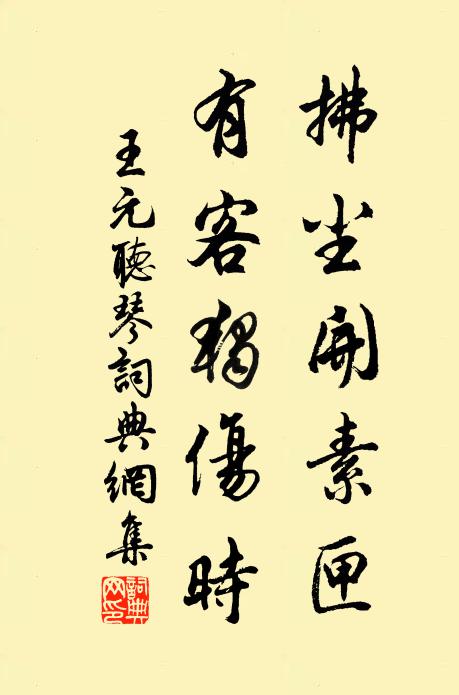 拂尘開素匣
有客獨傷時
王元聽琴詞典網集
詞典网印